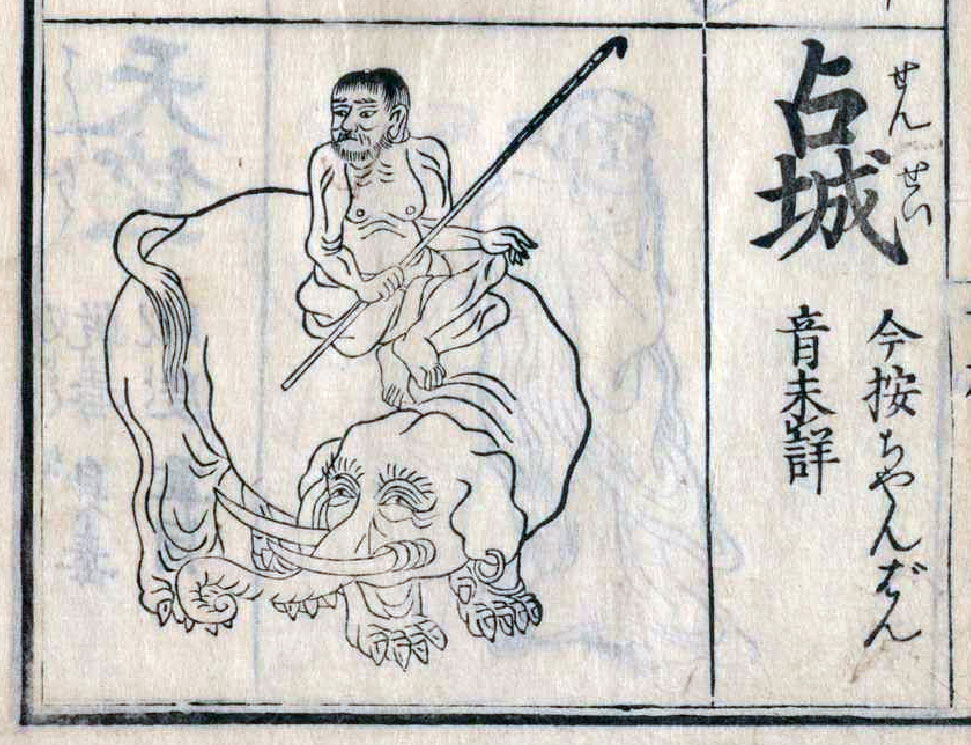 占城
せんせい
今按ちやんばん
音未詳